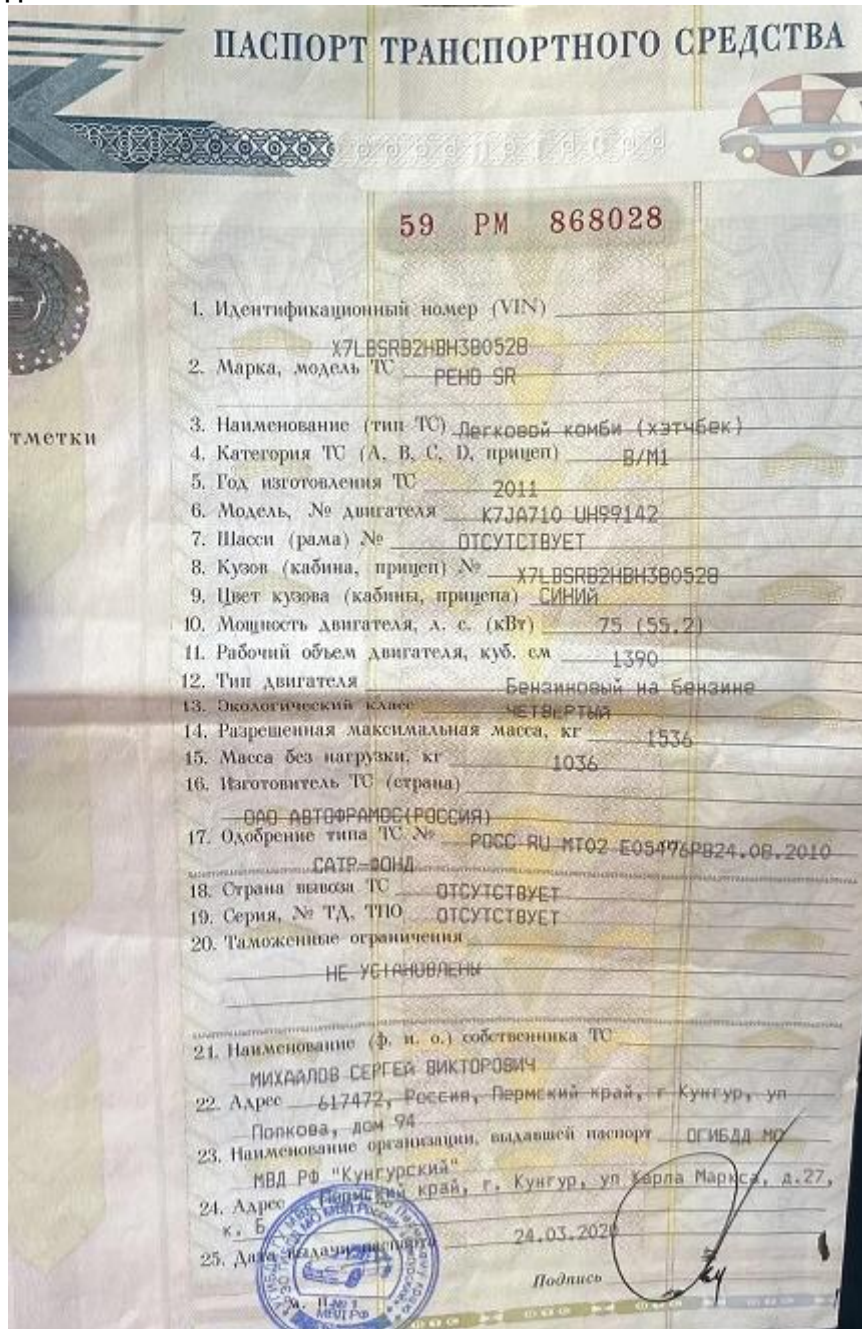 ПАСПОРТ ТРАНСПОРТНОГО СРЕДСТВА
59 РМ 868028
тметки
1. Идентификационный номер (VIN)
X7LBSRB2HBH380528
2. Марка, модель ТС РЕНО SR
3. Наименование (тип ТС) Легковой комби (хэтчбек)
4. Категория ТС (A, B, C, D, прицеп) B/M1
5. Год изготовления ТС 2011
6. Модель, № двигателя K7JA710 UH99142
7. Шасси (рама) № ОТСУТСТВУЕТ
8. Кузов (кабина, прицеп) № X7LBSRB2HBH380528
9. Цвет кузова (кабины, прицепа) СИНИЙ
10. Мощность двигателя, л. с. (кВт) 75 (55.2)
11. Рабочий объем двигателя, куб. см 1390
12. Тип двигателя Бензиновый на бензине
13. Экологический класс ЧЕТВЕРТЫЙ
14. Разрешенная максимальная масса, кг 1536
15. Масса без нагрузки, кг 1036
16. Изготовитель ТС (страна)
ОАО АВТОФРАМОС(РОССИЯ)
17. Одобрение типа ТС № РОСС RU МТ02 Е05476Р824.08.2010
САТР-ФОНД
18. Страна вывоза ТС ОТСУТСТВУЕТ
19. Серия, № ТД, ТПО ОТСУТСТВУЕТ
20. Таможенные ограничения
НЕ УСТАНОВЛЕНЫ
21. Наименование (ф. и. о.) собственника ТС
МИХАЙЛОВ СЕРГЕЙ ВИКТОРОВИЧ
22. Адрес 617472, Россия, Пермский край, г Кунгур, ул
Попкова, дом 94
23. Наименование организации, выдавшей паспорт ОГИБДД МО
МВД РФ "Кунгурский"
24. Адрес Пермский край, г. Кунгур, ул Карла Маркса, д.27,
к. Б
25. Дата выдачи паспорта 24.03.2020
Подпись
М. П.